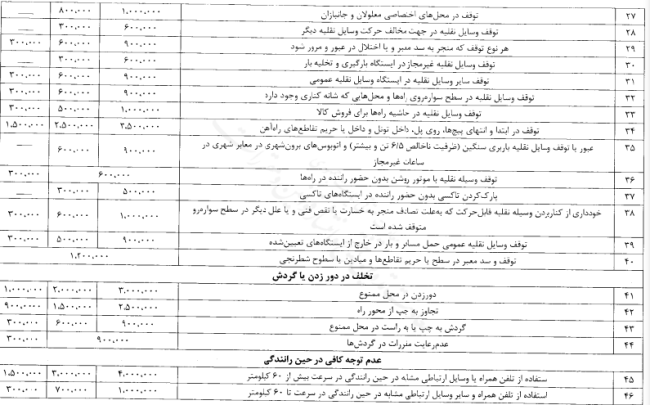 ۲۷ توقف در محل‌های اختصاصی معلولان و جانبازان ۱.۰۰۰.۰۰۰ ۸۰۰.۰۰۰ ——
۲۸ توقف وسایل نقلیه در جهت مخالف حرکت وسایل نقلیه دیگر ۶۰۰.۰۰۰ ۳۰۰.۰۰۰ ——
۲۹ هر نوع توقف که منجر به سد معبر و یا اختلال در عبور و مرور شود ۹۰۰.۰۰۰ ۶۰۰.۰۰۰ ۳۰۰.۰۰۰
۳۰ توقف وسایل نقلیه غیرمجاز در ایستگاه بارگیری و تخلیه بار ۶۰۰.۰۰۰ ۳۰۰.۰۰۰ ——
۳۱ توقف سایر وسایل نقلیه در ایستگاه وسایل نقلیه عمومی ۹۰۰.۰۰۰ ۶۰۰.۰۰۰ ۳۰۰.۰۰۰
۳۲ توقف وسایل نقلیه در سطح سواره‌روی راه‌ها و محل‌هایی که شانه کناری وجود دارد ۹۰۰.۰۰۰ ۶۰۰.۰۰۰ ۳۰۰.۰۰۰
۳۳ توقف وسایل نقلیه در حاشیه راه‌ها برای فروش کالا ۱.۰۰۰.۰۰۰ ۵۰۰.۰۰۰ ۳۰۰.۰۰۰
۳۴ توقف در ابتدا و انتهای پیچ‌ها، روی پل، داخل تونل و داخل یا حریم تقاطع‌های راه‌آهن ۲.۵۰۰.۰۰۰ ۲.۵۰۰.۰۰۰ ۱.۵۰۰.۰۰۰
۳۵ عبور یا توقف وسایل نقلیه باربری سنگین (ظرفیت ناخالص ۶/۵ تن و بیشتر) و اتوبوس‌های برون‌شهری در معابر شهری در ۹۰۰.۰۰۰ ۶۰۰.۰۰۰ ——
ساعات غیرمجاز
۳۶ توقف وسیله نقلیه با موتور روشن بدون حضور راننده در راه‌ها ۶۰۰.۰۰۰ ۳۰۰.۰۰۰
۳۷ پارک‌کردن تاکسی بدون حضور راننده در ایستگاه‌های تاکسی ۵۰۰.۰۰۰ ۳۰۰.۰۰۰ ——
۳۸ خودداری از کناربردن وسیله نقلیه قابل‌حرکت که به‌علت تصادف منجر به خسارت یا نقص فنی و یا علل دیگر در سطح سواره‌رو ۱.۰۰۰.۰۰۰ ۶۰۰.۰۰۰ ۳۰۰.۰۰۰
متوقف شده است
۳۹ توقف وسایل نقلیه عمومی حمل مسافر و بار در خارج از ایستگاه‌های تعیین‌شده ۹۰۰.۰۰۰ ۵۰۰.۰۰۰ ۳۰۰.۰۰۰
۴۰ توقف و سد معبر در سطح یا حریم تقاطع‌ها و میادین یا سطوح شطرنجی ۱.۲۰۰.۰۰۰
تخلف در دور زدن یا گردش
۴۱ دورزدن در محل ممنوع ۳.۰۰۰.۰۰۰ ۲.۰۰۰.۰۰۰ ۱.۰۰۰.۰۰۰
۴۲ تجاوز به چپ از محور راه ۲.۵۰۰.۰۰۰ ۱.۵۰۰.۰۰۰ ۹۰۰.۰۰۰
۴۳ گردش به چپ یا به راست در محل ممنوع ۹۰۰.۰۰۰ ۶۰۰.۰۰۰ ۳۰۰.۰۰۰
۴۴ عدم‌رعایت مقررات در گردش‌ها ۹۰۰.۰۰۰ ۳۰۰.۰۰۰
عدم توجه کافی در حین رانندگی
۴۵ ستفاده از تلفن همراه یا وسایل ارتباطی مشابه در حین رانندگی در سرعت بیش از ۶۰ کیلومتر ۴.۰۰۰.۰۰۰ ۳.۰۰۰.۰۰۰ ۱.۵۰۰.۰۰۰
۴۶ استفاده از تلفن همراه و سایر وسایل ارتباطی مشابه در حین رانندگی در سرعت تا ۶۰ کیلومتر ۱.۰۰۰.۰۰۰ ۷۰۰.۰۰۰ ۳۰۰.۰۰۰